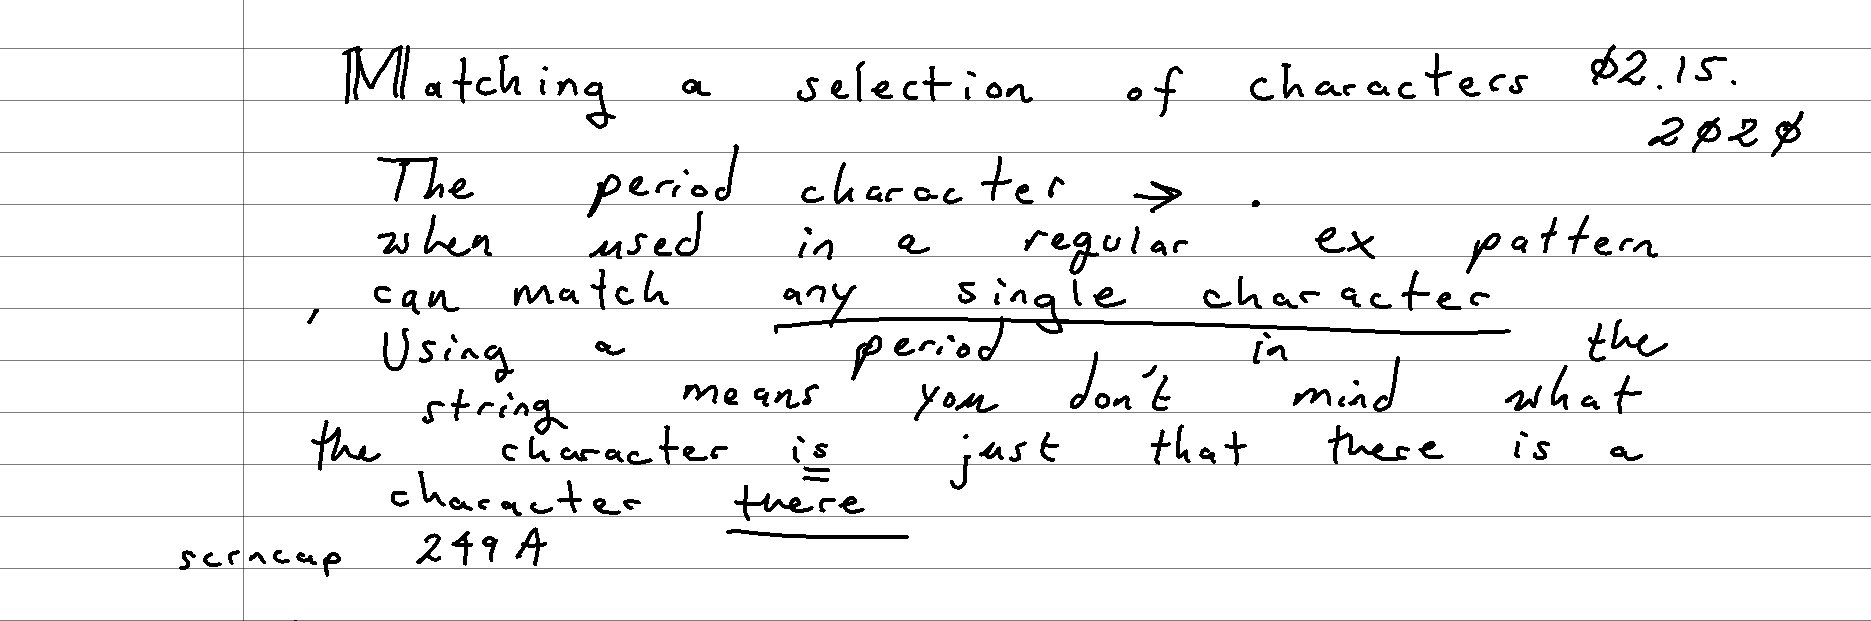 Matching a selection of characters 02.15.
2020
The period character → .
when used in a regular ex pattern
, can match any single character
Using a period in the
string means you don't mind what
the character is just that there is a
character there
scrncap 249A